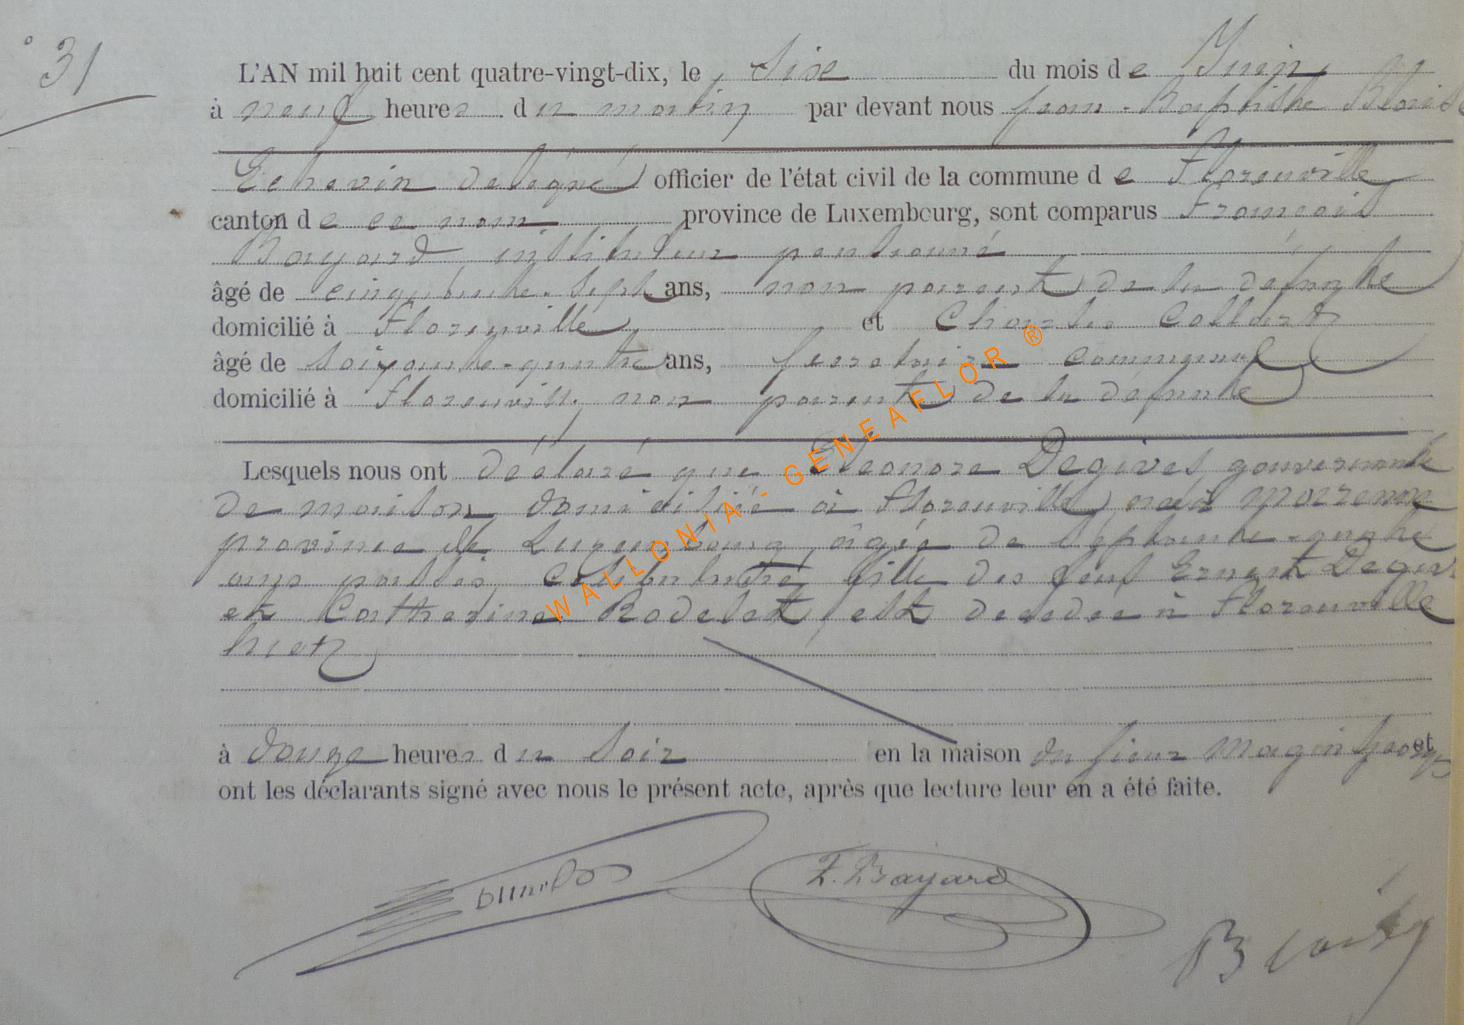 ° 31
L'AN mil huit cent quatre-vingt-dix, le Six du mois de Juin
à neuf heures du matin par devant nous Jean-Baptiste
Echevin délégué officier de l'état civil de la commune de Florenville
canton de ce nom province de Luxembourg, sont comparus François
Bayard instituteur pensionné
âgé de cinquante-sept ans, non parent de la défunte
domicilié à Florenville et Charles Collart
âgé de soixante-quatre ans, secrétaire communal
domicilié à Florenville non parent de la défunte
Lesquels nous ont déclaré que Eleonore Degives gouvernante
de maison domiciliée à Florenville, née à
province de Luxembourg, âgée de septante-quatre
ans passés, célibataire, fille des feus Ernest
et Catherine Rodelet, est décédée à Florenville
hier
à douze heures du soir en la maison du sieur Magin et
ont les déclarants signé avec nous le présent acte, après que lecture leur en a été faite.
F. Bayard
WALLONIA - GENEAFLOR ®